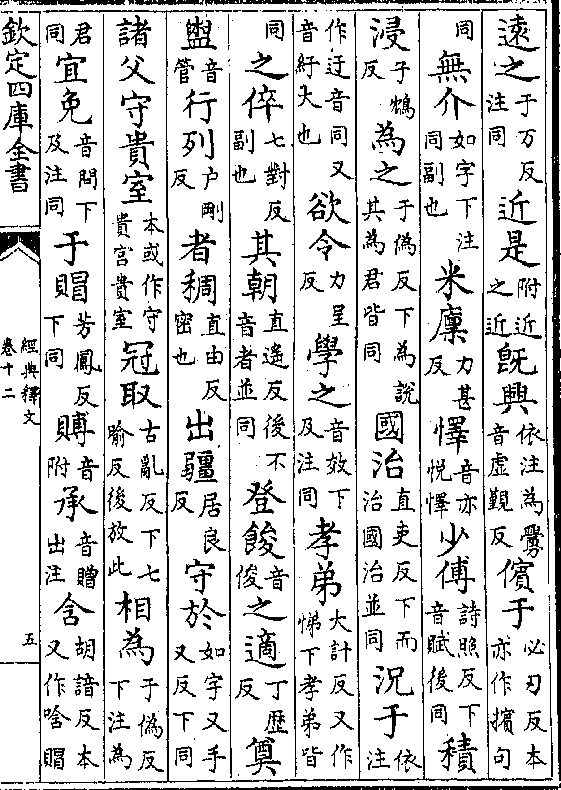 遠之于万反注同近是附近之近旣興依注為釁音虛覲反儐于必刃反本亦作擯句
同無介如字下注同副也米廩力甚反懌音亦悅懌少傅詩照反下音賦後同積
浸子鴆反為之于偽反下為說其為君皆同國治直吏反下而治國治並同況于依注
作迂音同又音紆大也欲令力呈反學之音效下及注同孝弟大計反又作悌下孝弟皆
同之倅七對反副也其朝直遙反後不音者並同登餕音俊之適丁歷反奠
盥音管行列户剛反者稠直由反密也出疆居良反守於如字又手又反下同
諸父守貴室本或作守貴宮貴室冠取古亂反下七喻反後放此相為于偽反下注為
君同宜免音問下及注同于賵芳鳳反下同賻音附承音贈出注含胡諳反本又作唅賵
欽定四庫全書
經典釋文
卷十二
五